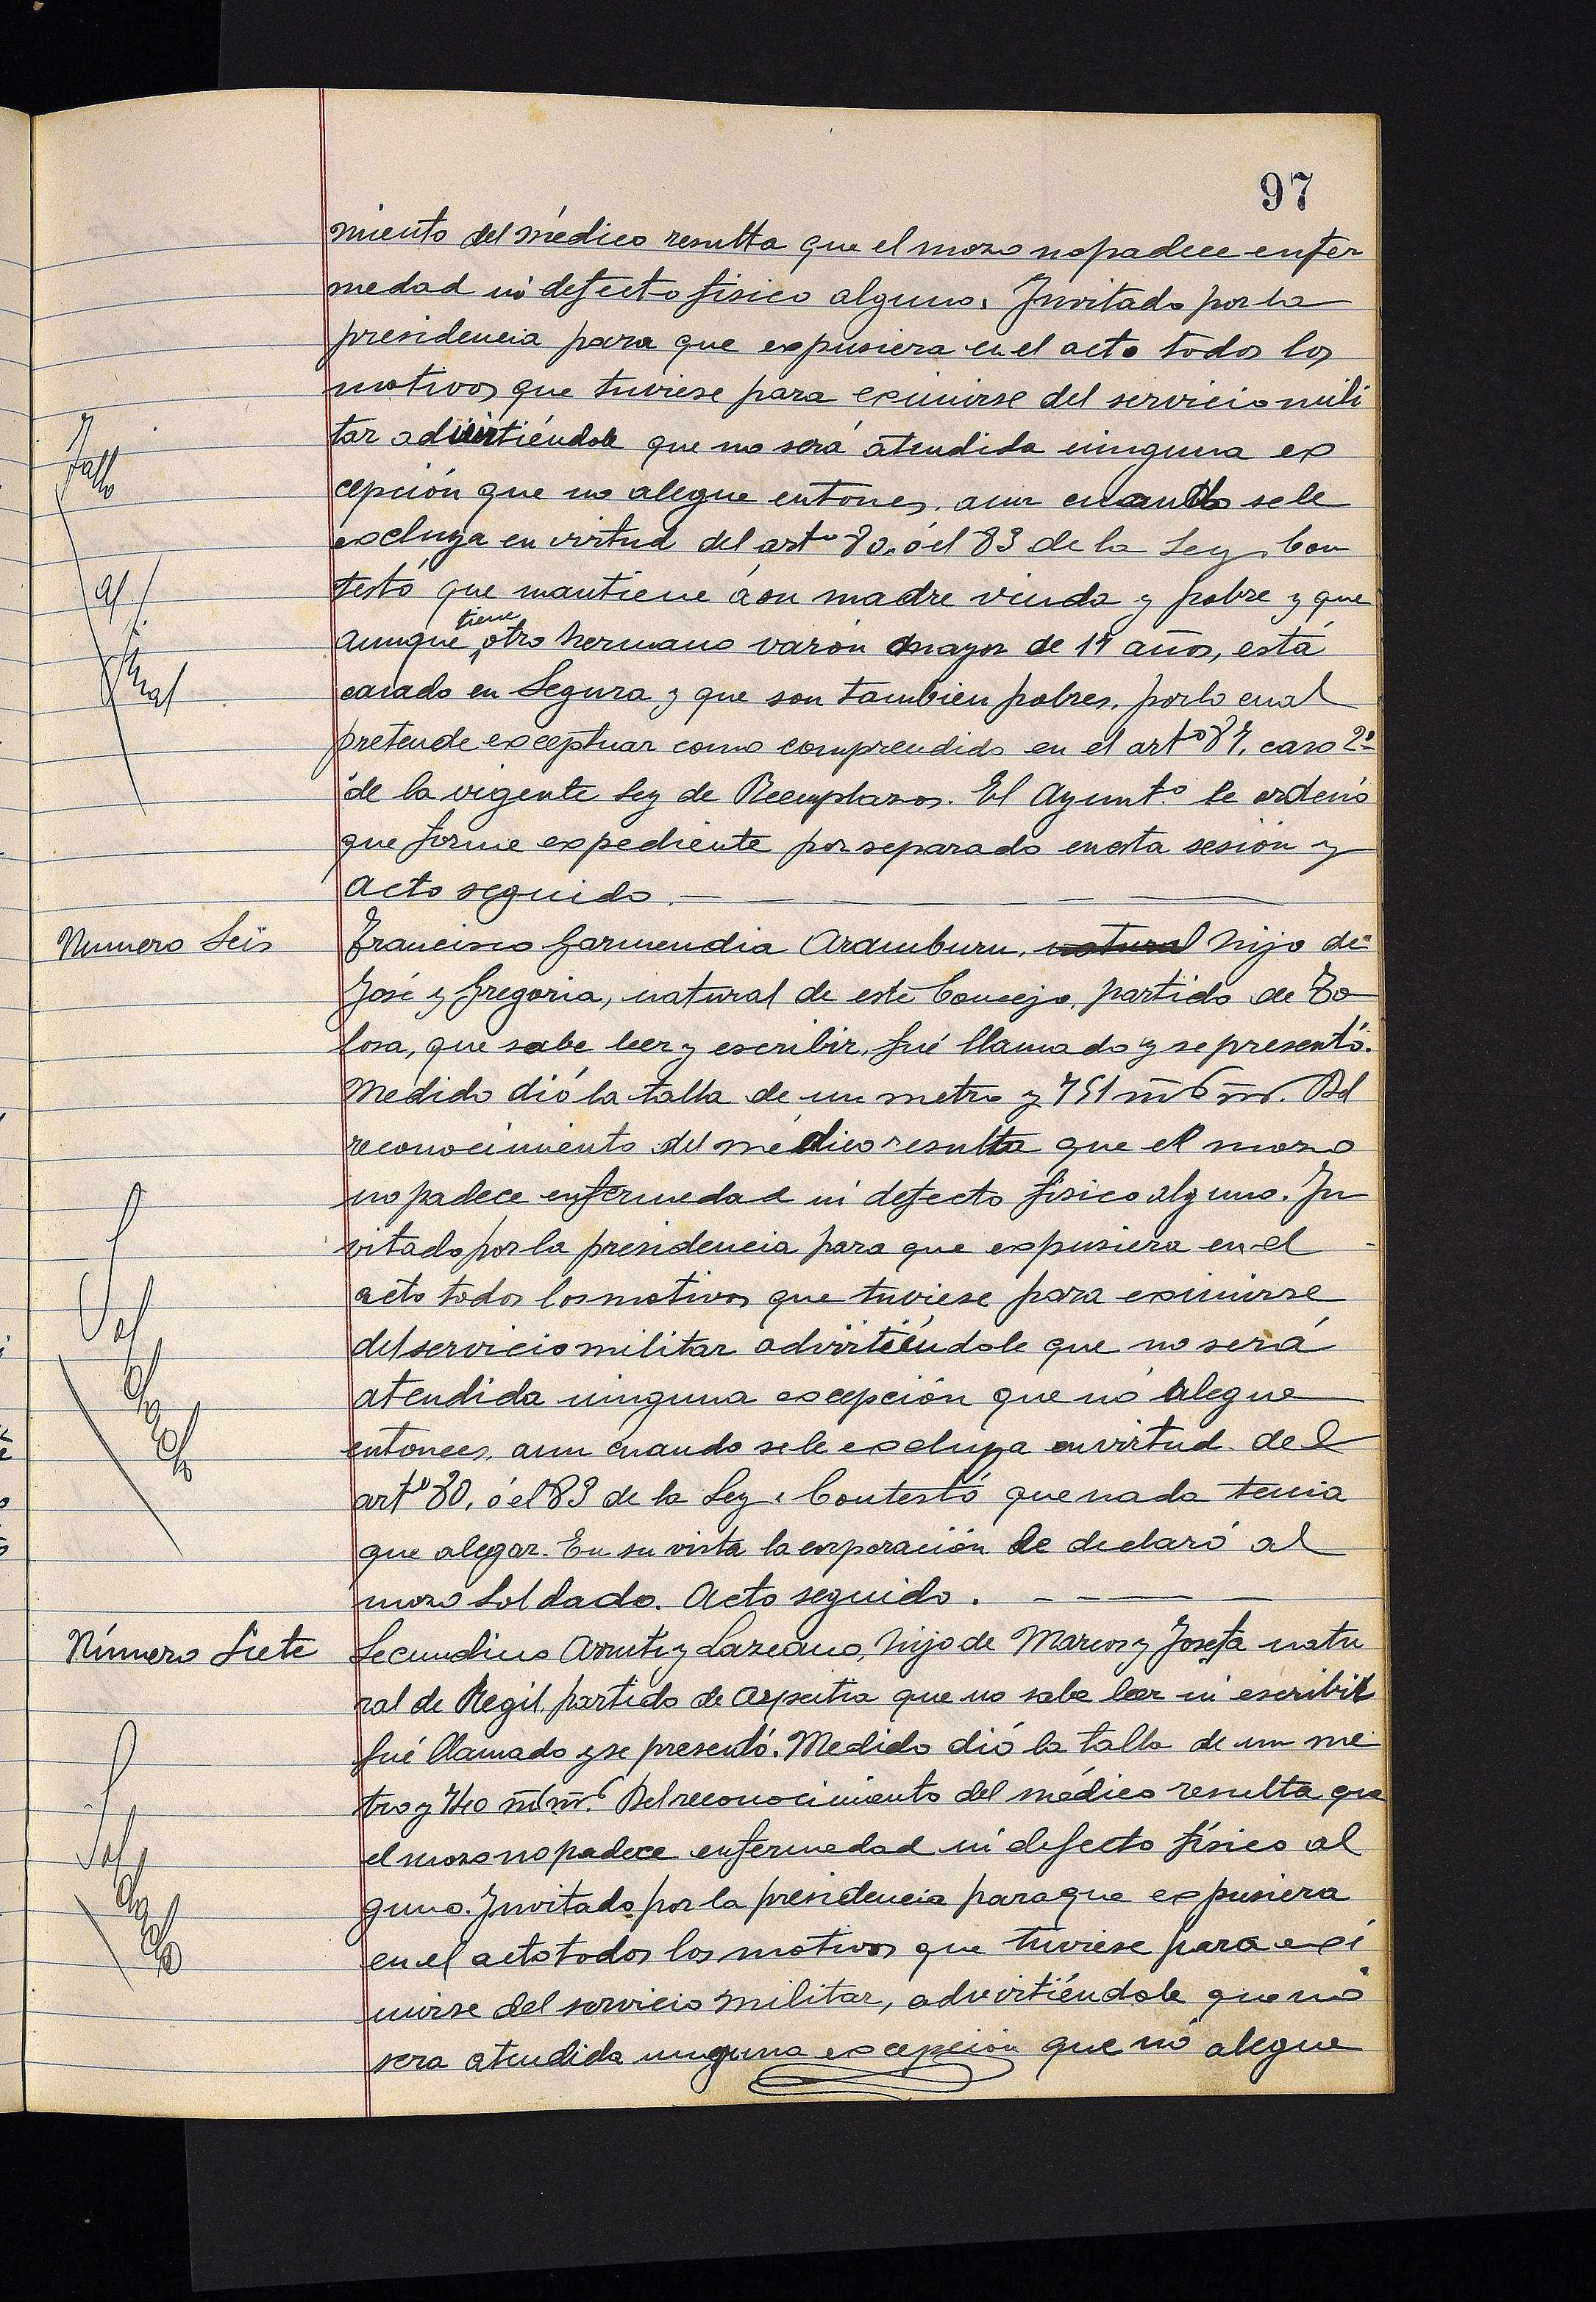 97
miento del médico resulta que el mozo no padece enfer
medad ni defecto físico alguno. Invitado por la
presidencia para que expusiera en el acto todos los
motivos que tuviese para eximirse del servicio mili
tar advirtiéndole que no será atendida ninguna ex
cepción que no alegue entonces, aun cuando se le
excluya en virtud del artº 80. ó el 83 de la Ley. Con
testó que mantiene á su madre viuda y pobre y que
tiene
aunque otro hermano varón mayor de 17 años, está
casado en Segura y que son tambien pobres, por lo cual
pretende exceptuar como comprendido en el artº 87, caso 2º
de la vigente Ley de Reemplazos. El Ayuntº le ordenó
que forme expediente por separado en esta sesión y
acto seguido.
Numero Seis
Francisco Garmendia Aramburu, natural hijo de
José y Gregoria, natural de este Concejo, partido de To
losa, que sabe leer y escribir, fué llamado y se presentó.
Medido dió la talla de un metro y 751 m m. Del
reconocimiento del médico resulta que el mozo
no padece enfermedad ni defecto físico alguno. In
vitado por la presidencia para que expusiera en el
acto todos los motivos que tuviese para eximirse
del servicio militar advirtiéndole que no será
atendida ninguna excepción que no alegue
entonces, aun cuando se le excluya en virtud del
artº 80, ó el 83 de la Ley. Contestó que nada tenia
que alegar. En su vista la corporación le declaró al
mozo Soldado. Acto seguido.
Número Siete
Secundino Arruti y Lazcano, hijo de Marcos y Josefa natu
ral de Regil, partido de Azpeitia que no sabe leer ni escribir
fué llamado y se presentó. Medido dió la talla de un me
tro y 740 m m. Del reconocimiento del médico resulta que
el mozo no padece enfermedad ni defecto físico al
guno. Invitado por la presidencia para que expusiera
en el acto todos los motivos que tuviese para exi
mirse del servicio militar, advirtiéndole que no
sera atendida ninguna excepción que no alegue